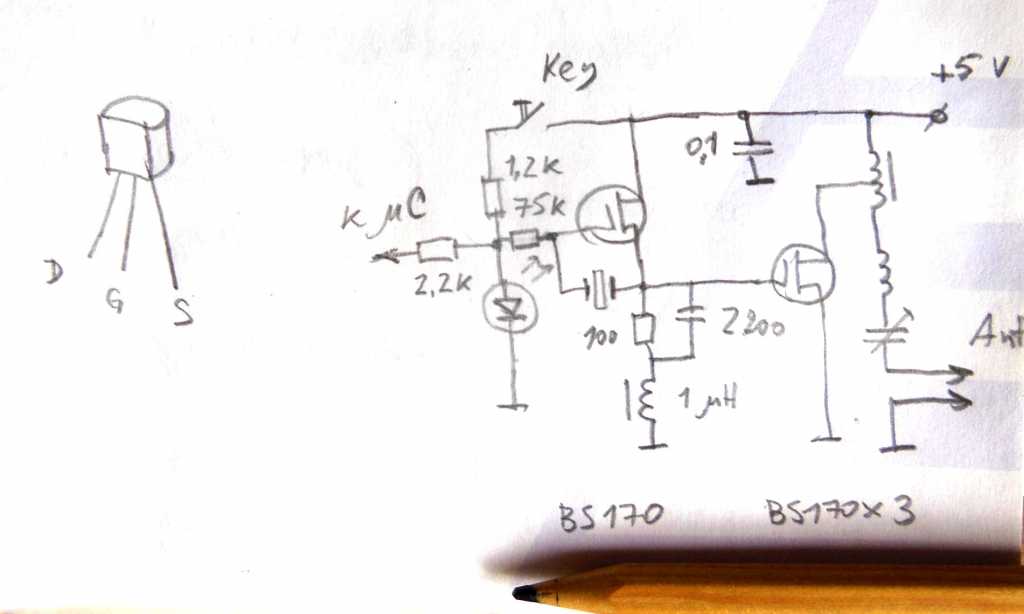 Key
+5 V
0,1
1,2K
75K
к μC
D
G
S
2,2K
100
2200
Ant
1 μH
BS170
BS170x3